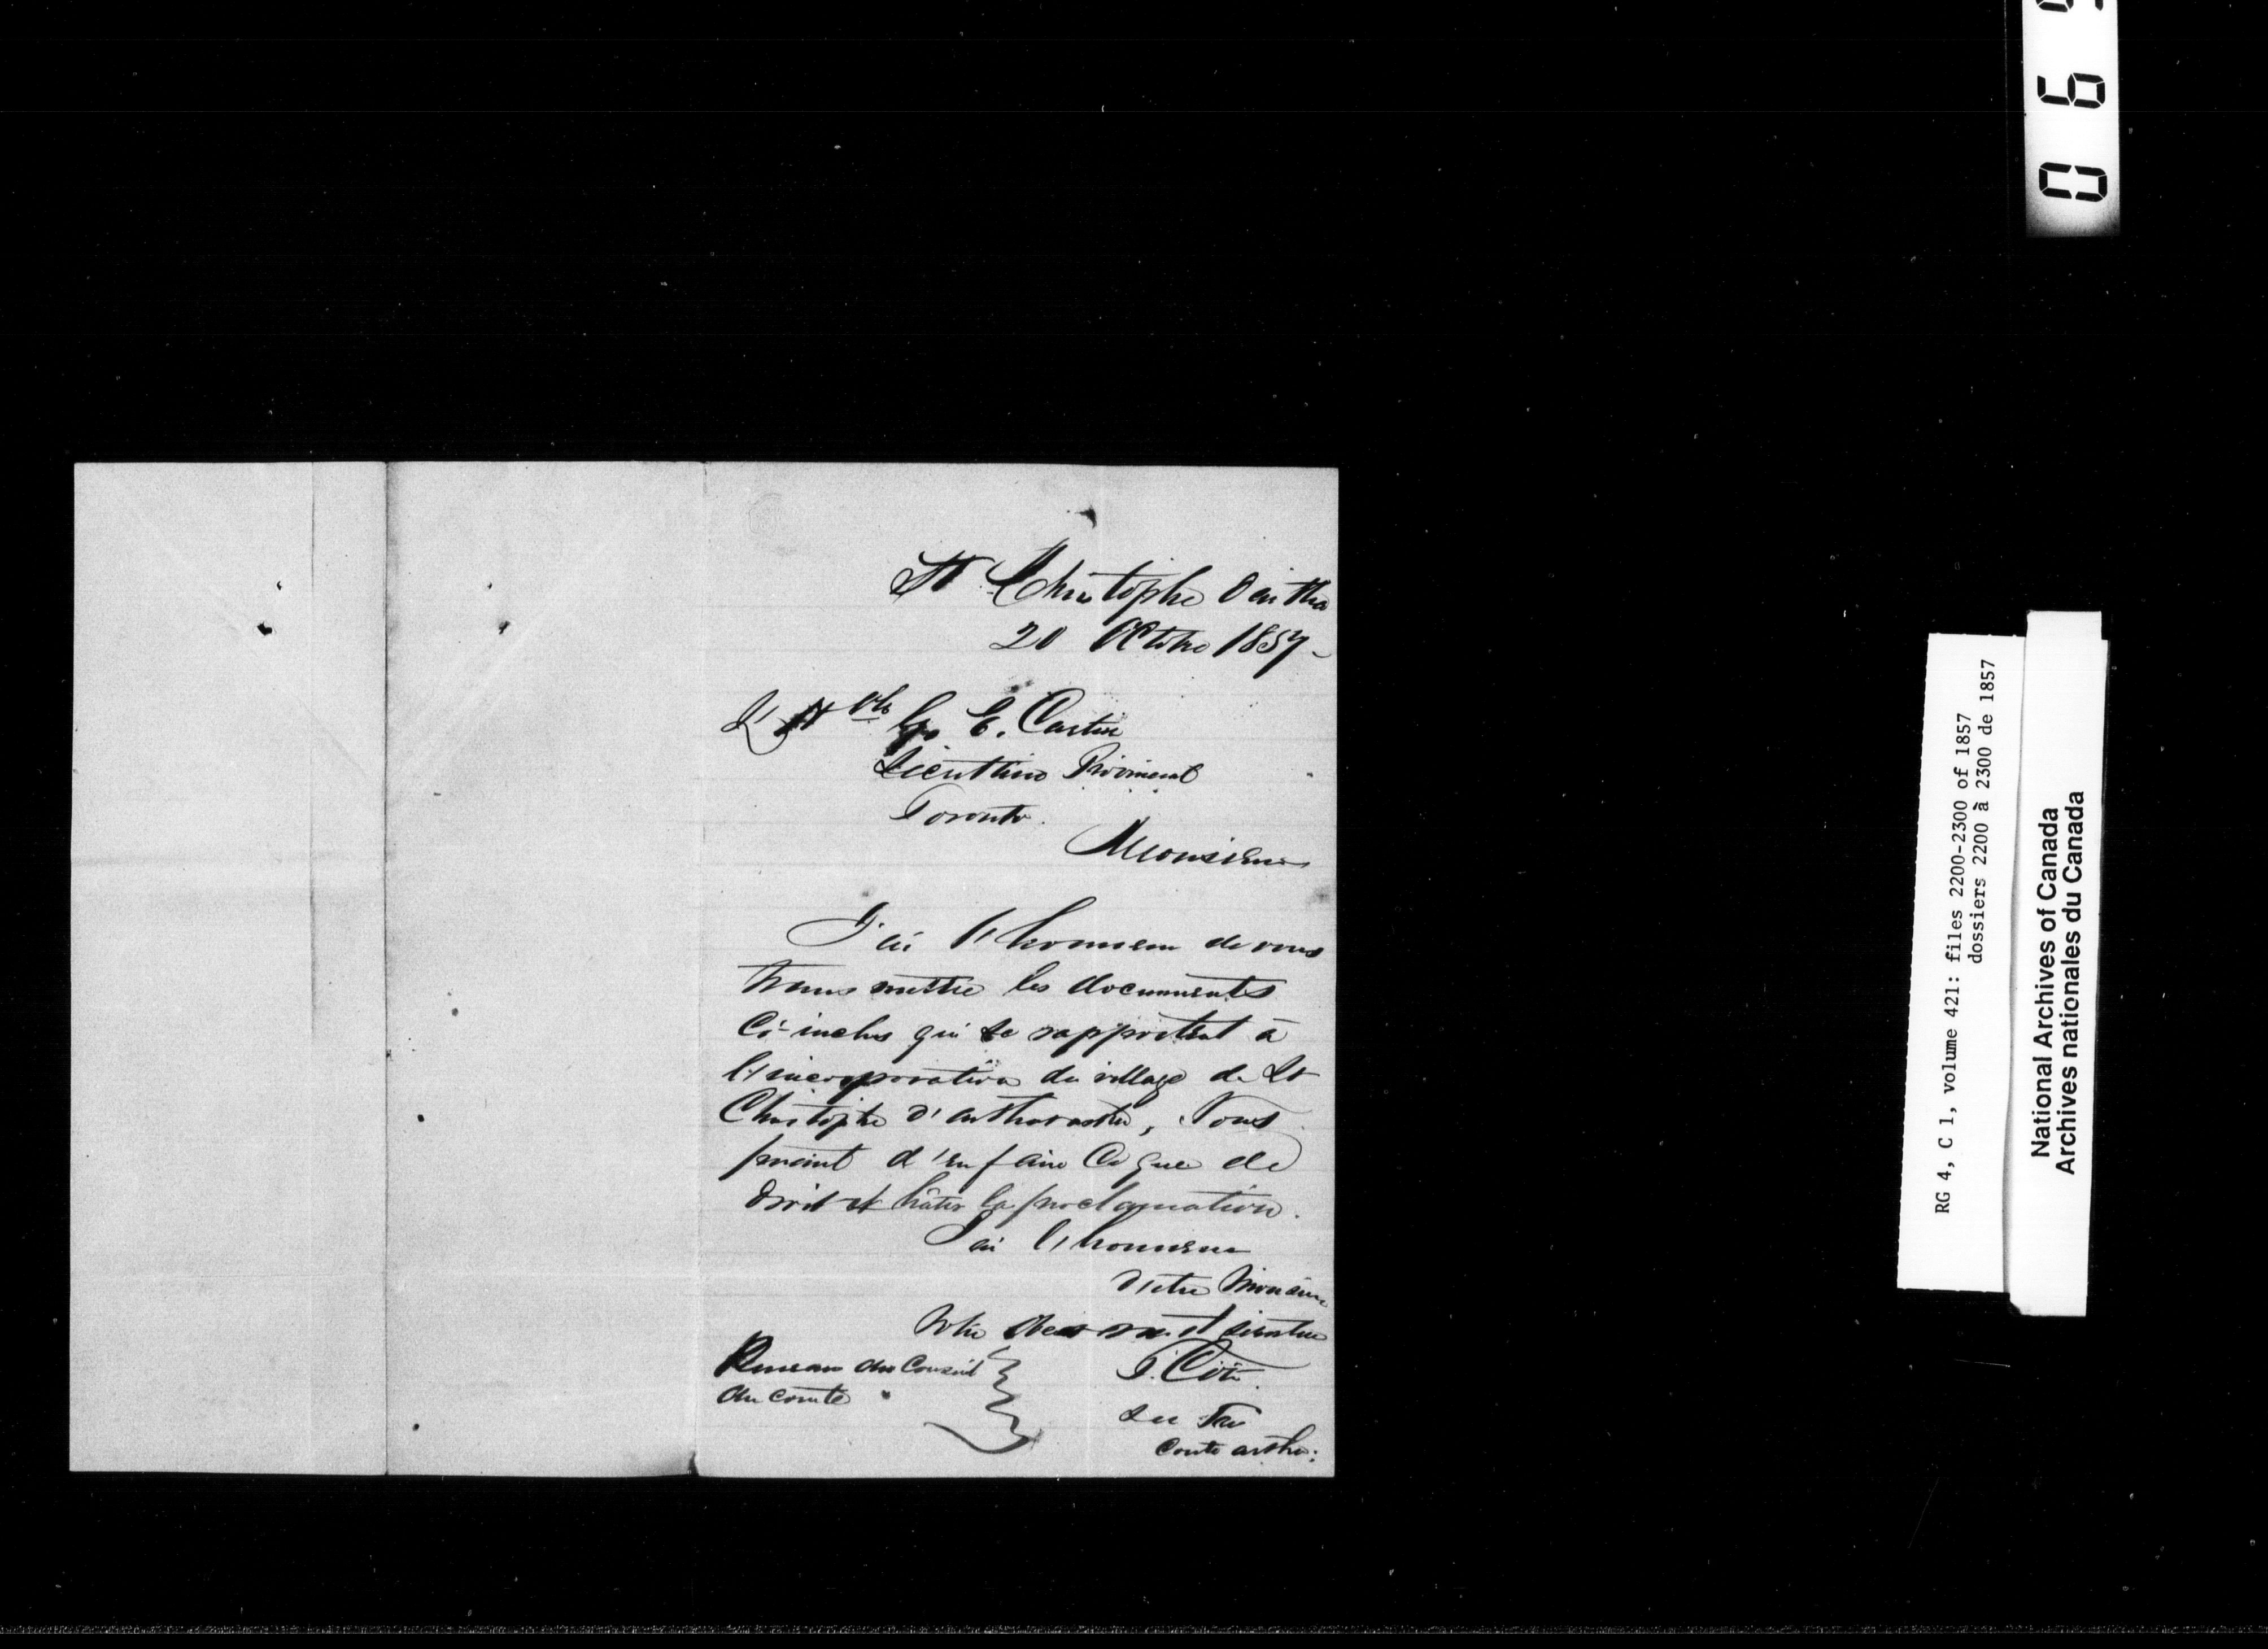 St Christophe d'artha
20 Octobre 1857-
L'Hble Geo E. Cartier
Secrettaire Provincial
Toronto.
Monsieur
J'ai l'honneur de vous
transmettre les documents
Ci-inclus qui se rapportent à
l'incorporation du village de St
Christophe d'arthabaska, Vous
priant d'en faire Ce que de
droit et hâter la proclamation.
J'ai l'honneur
d'etre Monsieur
Votre Serviteur
Bureau du Conseil
du comté
P. Coté
Sec Tre
Comté artha:
0 6 9
RG 4, C 1, volume 421: files 2200-2300 of 1857
dossiers 2200 à 2300 de 1857
National Archives of Canada
Archives nationales du Canada